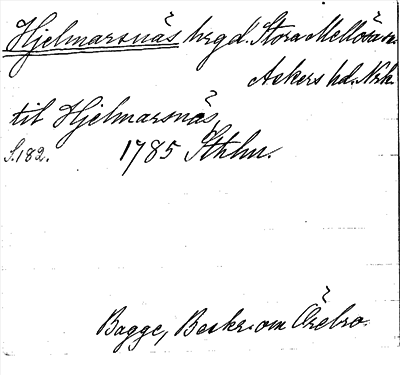 Hjelmarsnäs hrgd. Stora Mellösa sn.
Askers hd. Nrk.
till Hjelmarsnäs,
S. 182. 1785 Sthlm.
Bagge, Beskr. om Örebro.